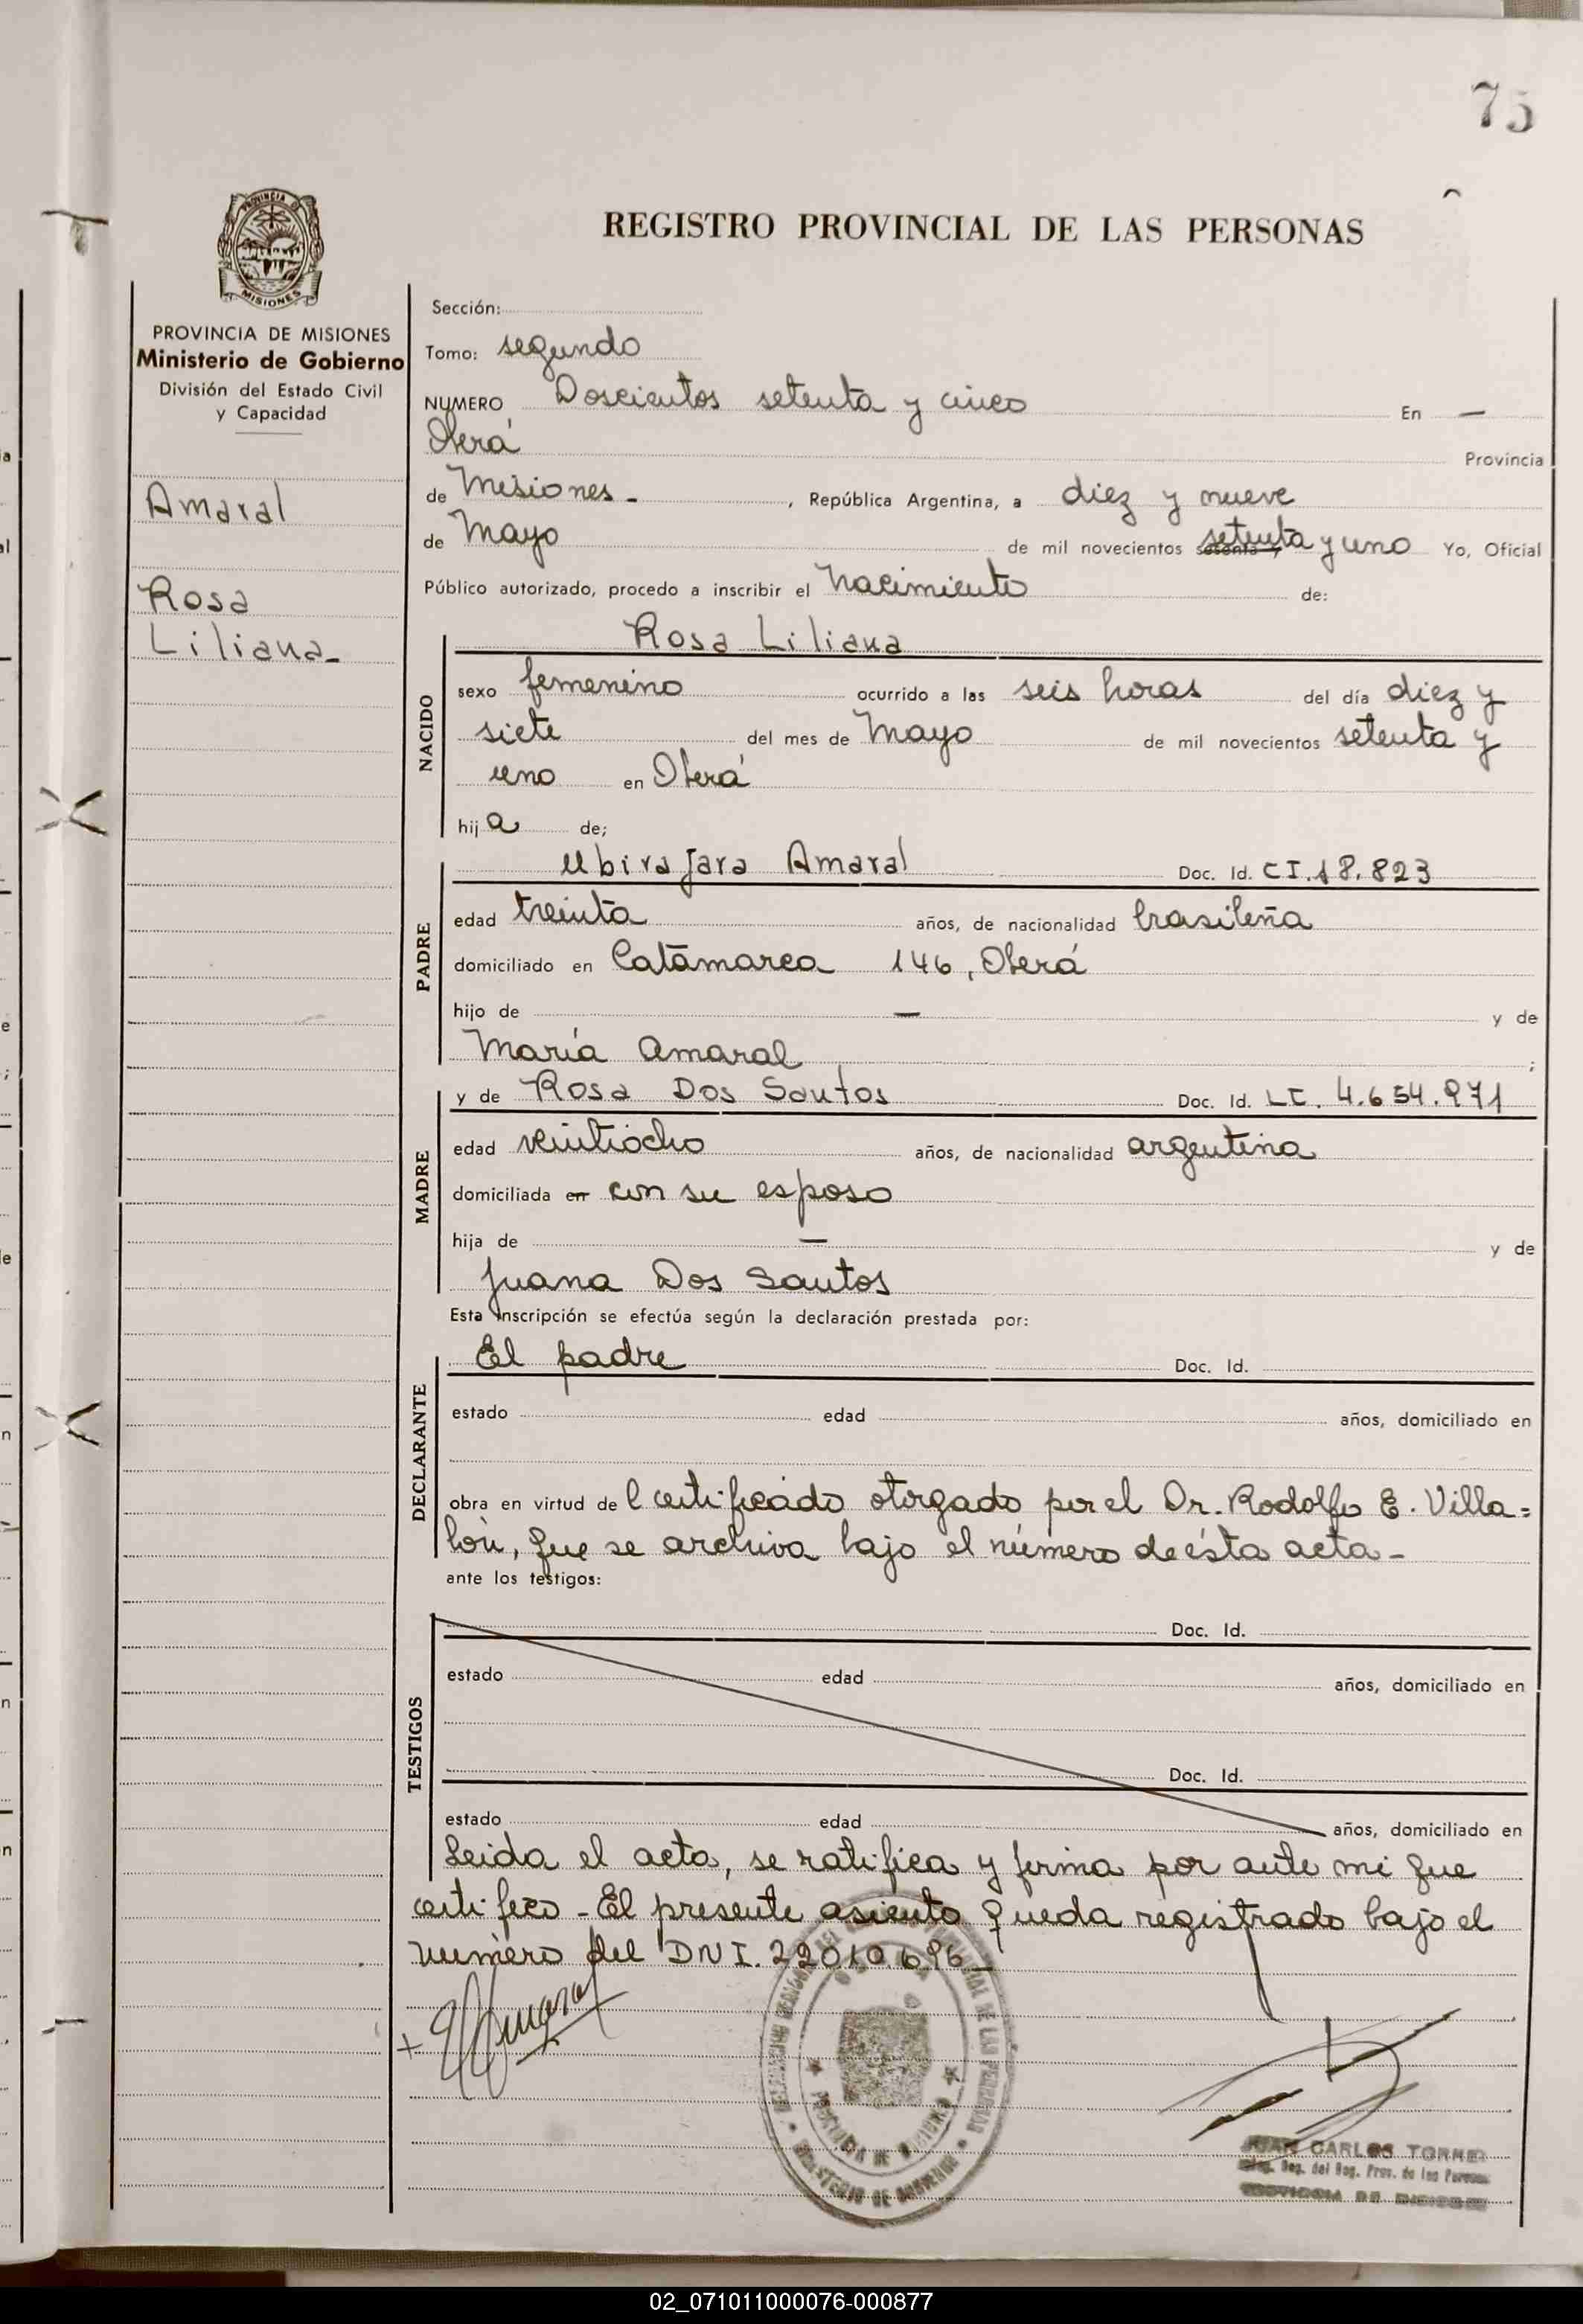 75
REGISTRO PROVINCIAL DE LAS PERSONAS
PROVINCIA DE MISIONES
PROVINCIA DE MISIONES
Ministerio de Gobierno
División del Estado Civil
y Capacidad
Amaral
Rosa
Liliana-
Sección:
Tomo: segundo
NUMERO Doscientos setenta y cinco En —
Oberá Provincia
de Misiones- , República Argentina, a diez y nueve
de Mayo de mil novecientos setenta y uno Yo, Oficial
Público autorizado, procedo a inscribir el Nacimiento de:
Rosa Liliana
NACIDO
sexo femenino ocurrido a las seis horas del día diez y
siete del mes de Mayo de mil novecientos setenta y
uno en Oberá
hija de;
PADRE
Ubirajara Amaral Doc. Id. CI.18.823
edad treinta años, de nacionalidad brasileña
domiciliado en Catamarca 146, Oberá
hijo de — y de
María Amaral ;
MADRE
y de Rosa Dos Santos Doc. Id. LC. 4.654.971
edad veintiocho años, de nacionalidad argentina
domiciliada en con su esposo
hija de — y de
Juana Dos Santos
Esta inscripción se efectúa según la declaración prestada por:
DECLARANTE
El padre Doc. Id.
estado edad años, domiciliado en
obra en virtud del certificado otorgado por el Dr. Rodolfo E. Villa=
lón, que se archiva bajo el número de ésta acta-
ante los testigos:
TESTIGOS
Doc. Id.
estado edad años, domiciliado en
Doc. Id.
estado edad años, domiciliado en
Leida el acta, se ratifica y firma por ante mi que
certifico - El presente asiento queda registrado bajo el
número del DNI. 22010.696-
Amaral
JUAN CARLOS TORRE
Reg. del Reg. Prov. de las Personas
PROVINCIA DE MISIONES
02_071011000076-000877